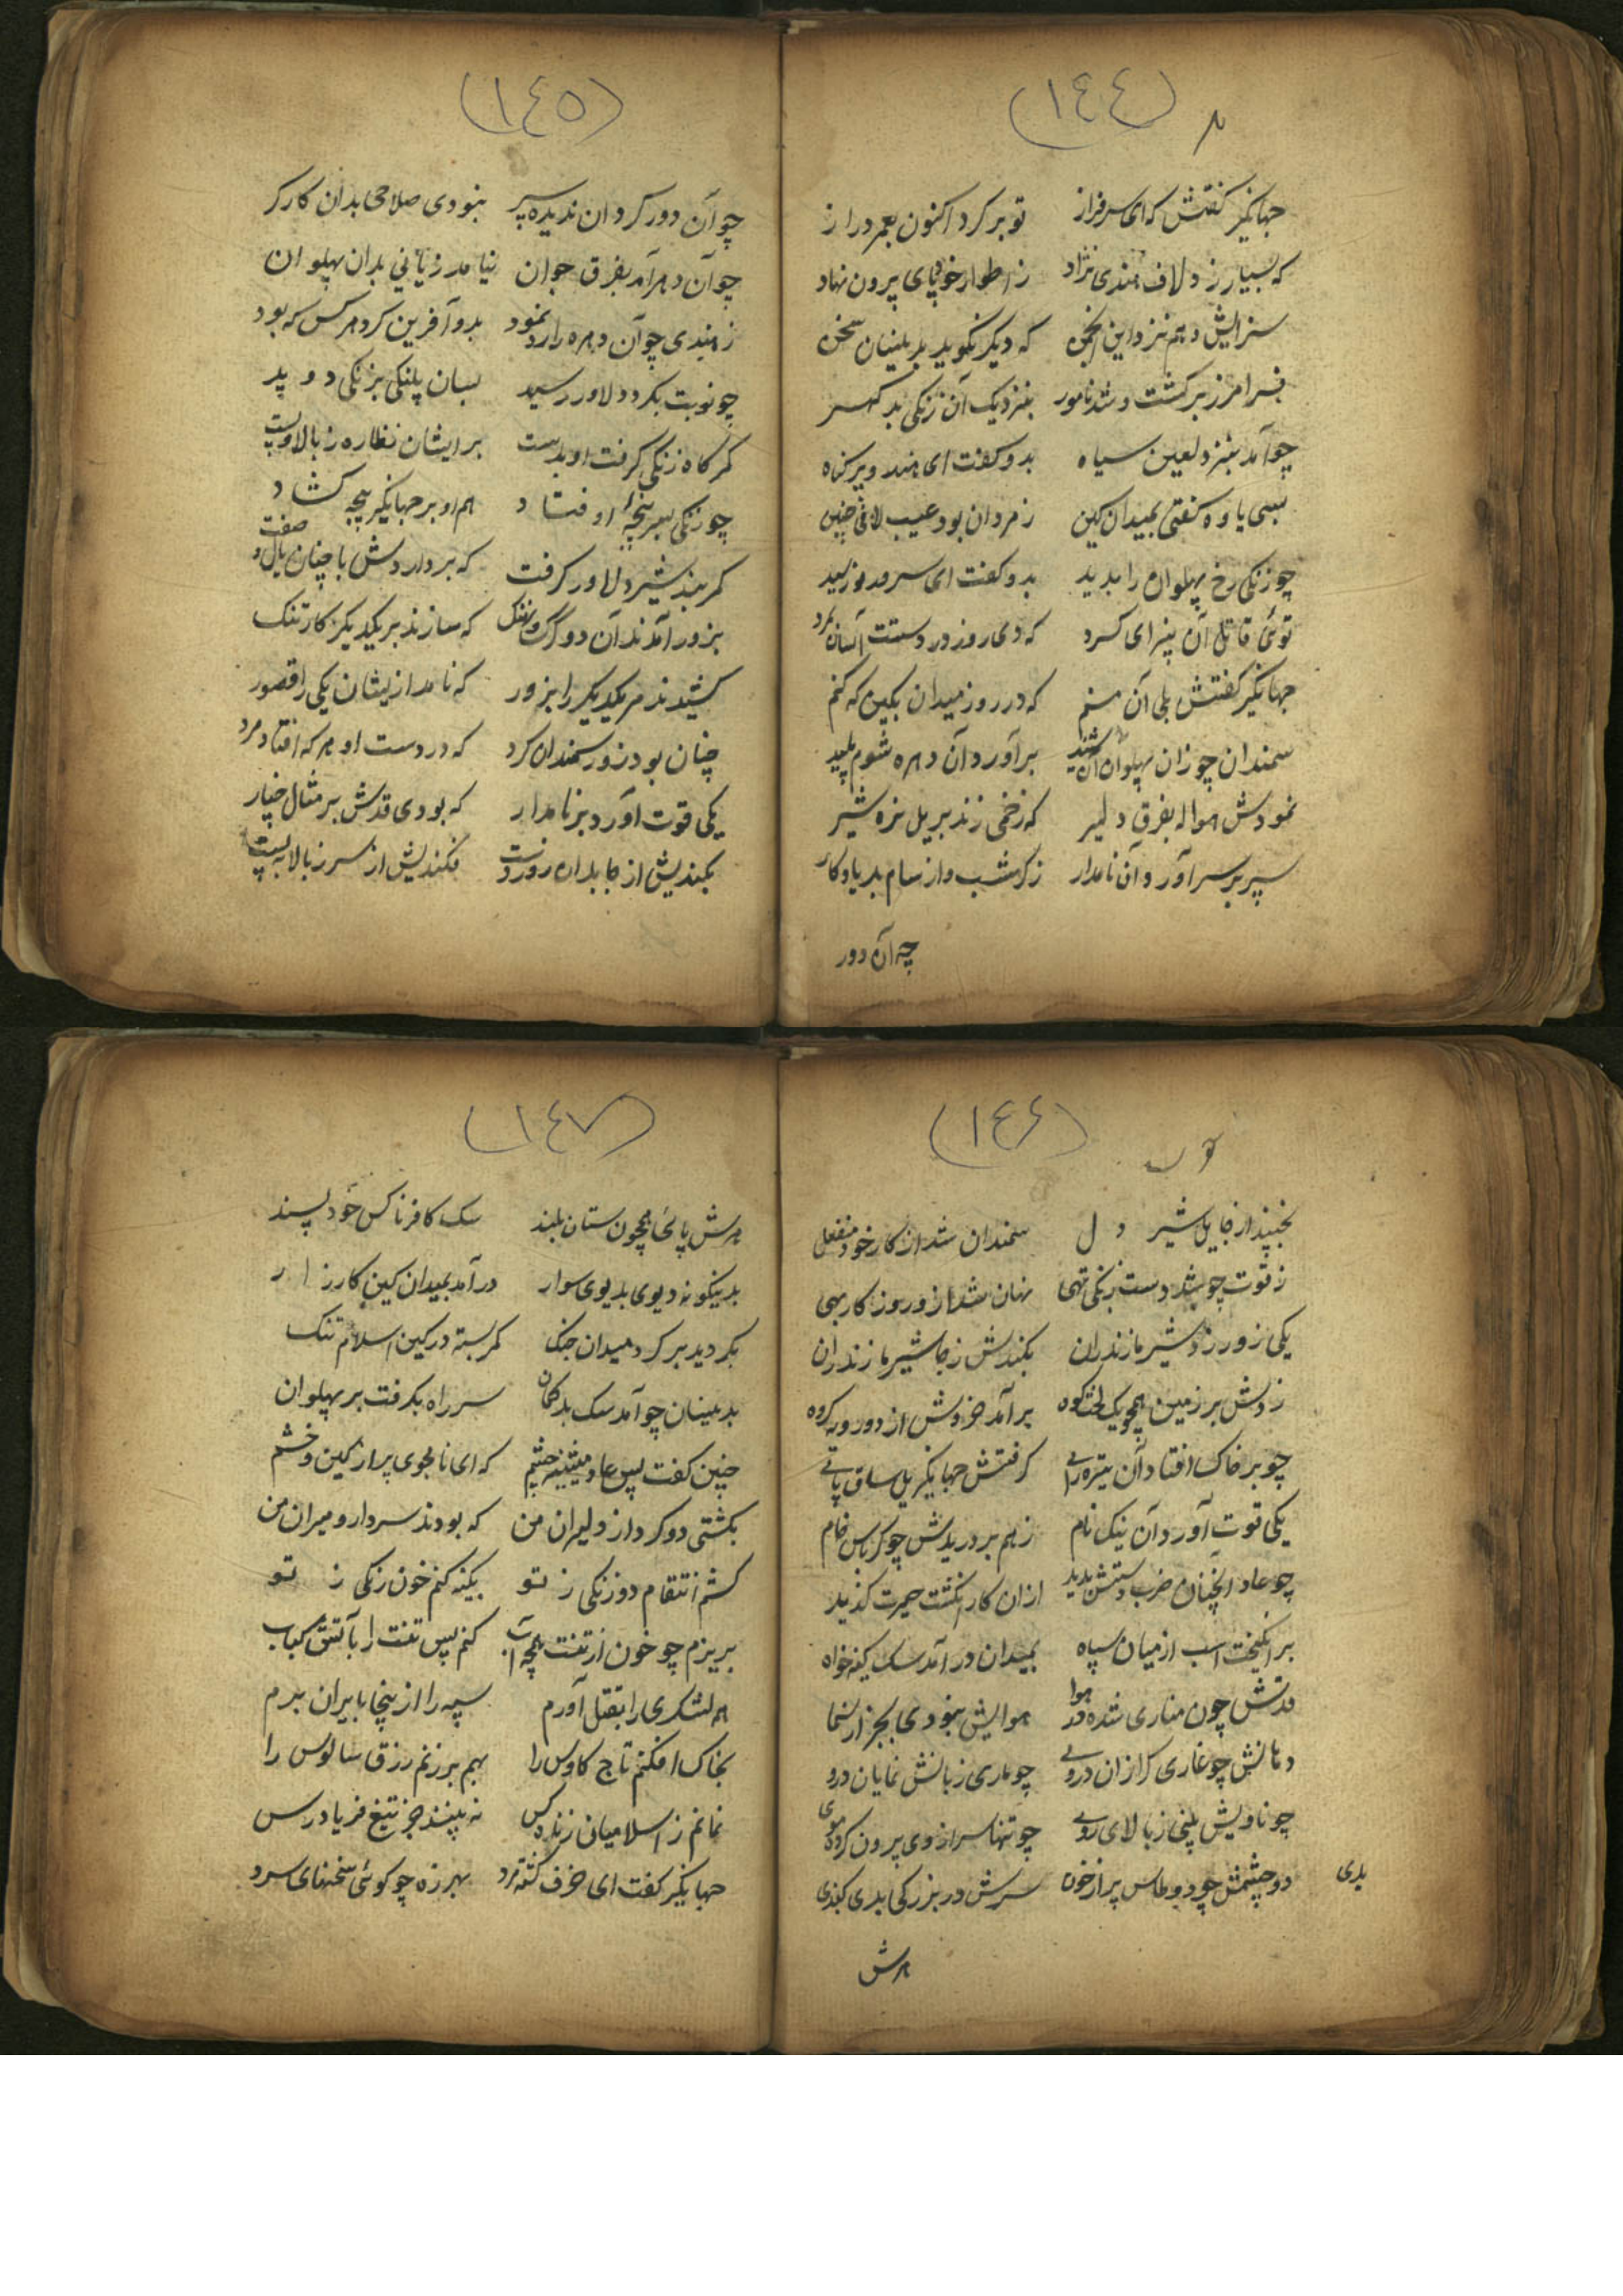 (١٤٤)
جهانگیر گفتش که ای سرفراز تو برگرد اکنون بعمر دراز
که بسیار زد لاف هندی نژاد ز اطوار خود پای بیرون نهاد
سزایش دهم نزد این انجمن که دیگر نگوید بدینسان سخن
فرامرز برگشت و شد نامور بنزدیک آن زنگی بد گهر
چو آمد بنزد لعین سیاه بدو گفت ای هندو پر گناه
بسی یاوه گفتی بمیدان کین ز مردان بود عیب لافی چنین
چو زنگی رخ پهلوان را بدید بدو گفت ای سرور
توئی قاتل آن که دی روز در دستت
جهانگیر گفتش بلی آن منم که در روز میدان بکین که کنم
سمندان چو زان پهلوان آن شنید برآورد آن دهره شوم پلید
نمودش حواله بفرق دلیر که زخمی زند بر یل نره شیر
سپر بر سر آورد آن نامدار ز گرشسب و از سام بد یادگار
چه آن دور
(١٤٥)
چو آن دور گردان ندیده سپر نبودی سلاحی بدان کارگر
چو آن دهره آمد بفرق جوان نیامد زیانی بدان پهلوان
ز هندی چو آن دهره را رد نمود بدو آفرین کرد هر کس که بود
چو نوبت بگرد دلاور رسید بسان پلنگی بزنگی دوید
کمرگاه زنگی گرفت او بدست بر ایشان نظاره ز بالا و پست
چو زنگی بسر پنجه او فتاد هم او بر جهانگیر پنجه گشاد
کمربند شیر دلاور گرفت که بردارد‌ش با چنان یال و صفت
بزور آمدند آن دو گرگ و نهنگ که سازند بر یکدیگر کار تنگ
کشیدند مر یکدیگر را بزور که نامد از ایشان یکی را قصور
چنان بود زور سمندان گرد که در دست او هر که افتاد مرد
یکی قوت آورد بر نامدار که بودی قدش بر مثال چنار
بکندیش از جا بدان زور دست فکندیش از سر ز بالا به پست
(١٤٦)
بجنبید از جا یل شیر دل سمندان شد از کار خود منفعل
ز قوت چو شد دست زنگی تهی نهان شد ازو روز کار بهی
یکی زور زد شیر مازندران بکندش ز جا شیر مازندران
زدش بر زمین همچو یک لخت کوه برآمد خروش از دو رویه گروه
چو بر خاک افتاد آن تیره رای گرفتش جهانگیر یل ساق پای
یکی قوت آورد آن نیک نام ز هم بر دریدش چو کرباس خام
چو عاد آنچنان ضرب دستش بدید از آن کار انگشت حیرت گزید
برانگیخت اسب از میان سپاه بمیدان در آمد سک کینه خواه
قدش چون مناری شده در هوا هوایش نبودی بجز
دهانش چو غاری گرازان دروی چو ماری زبانش نمایان دروی
چو ناویش بینی ز بالای روی چو تنها سر از وی برون کرده موی
دو چشمش چو دو طاس پر از خون بدی سرش در بزرگی بدی گنبدی
هرش
(١٤٧)
هرش پائی همچون ستان بلند سک کافر ناکس خود پسند
بدینگونه دیوی بدیوی سوار در آمد بمیدان کین کارزار
بگردید بر گرد میدان جنگ کمر بسته در کین اسلام تنگ
بدینسان چو آمد سک بدگمان سر راه بگرفت بر پهلوان
چنین گفت پس عاد میشینه چشم که ای نامجوی پر از کین و خشم
بکشتی دو گرد از دلیران من که بودند سردار و میران من
کشم انتقام دو زنگی ز تو بکینه کنم خون زنگی ز تو
بریزم چو خون از تنت همچو آب کنم پس تنت را بآتش کباب
همه لشکری را بقتل آورم سپه را از ینجا بایران برم
بخاک افکنم تاج کاوس را بهم برزنم رزق سالوس را
نمانم ز اسلامیان زنده کس نه بینند جز تیغ فریاد رس
جهانگیر گفت ای خرف گشته مرد بهرزه چو گوئی سخنهای سرد
بدی